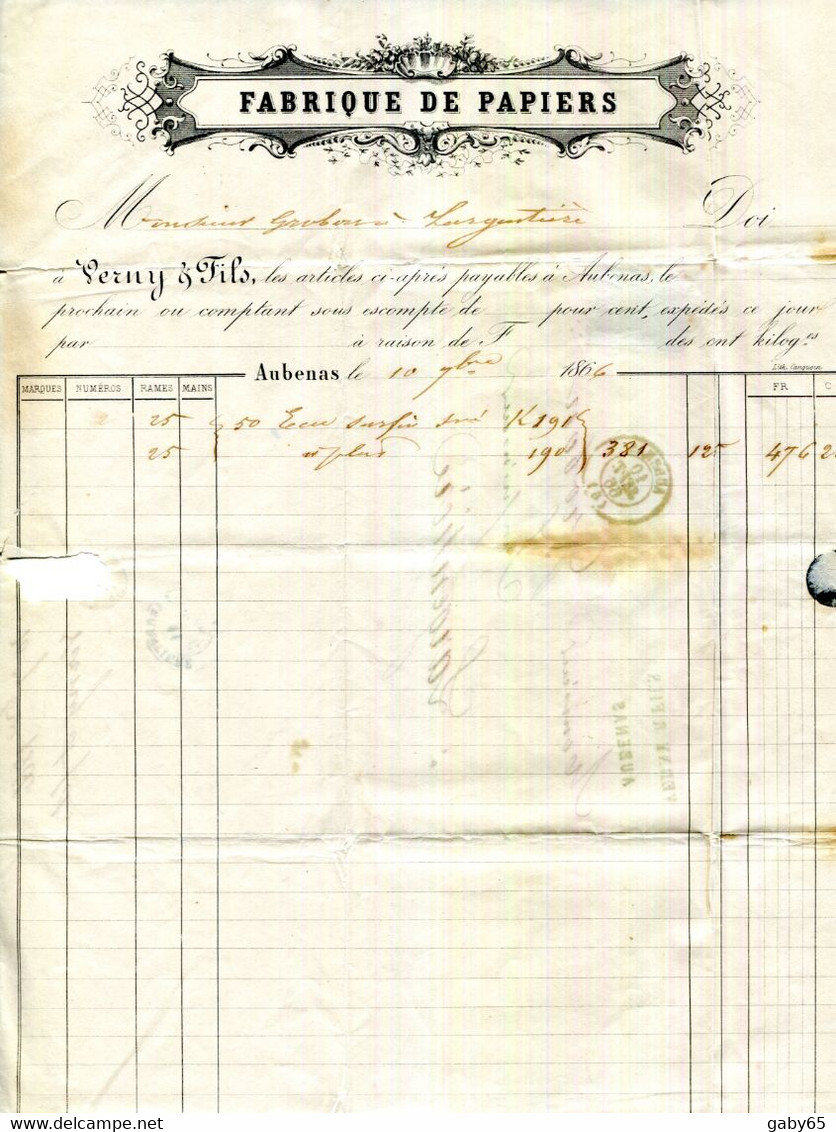 FABRIQUE DE PAPIERS
Monsieur Largentière Doi
à Verny & Fils, les articles ci-après payables à Aubenas, le
prochain ou comptant sous escompte de pour cent, expédés ce jour
par à raison de F des cnt kilog.es
Aubenas le 10 7bre 1866
Lith. Canquoin
MARQUES NUMÉROS RAMES MAINS FR C
2 25 50 Ecu surfin K 191
25 190 381 125 476 2
VERNY & FILS
AUBENAS
delcampe.net
gaby65